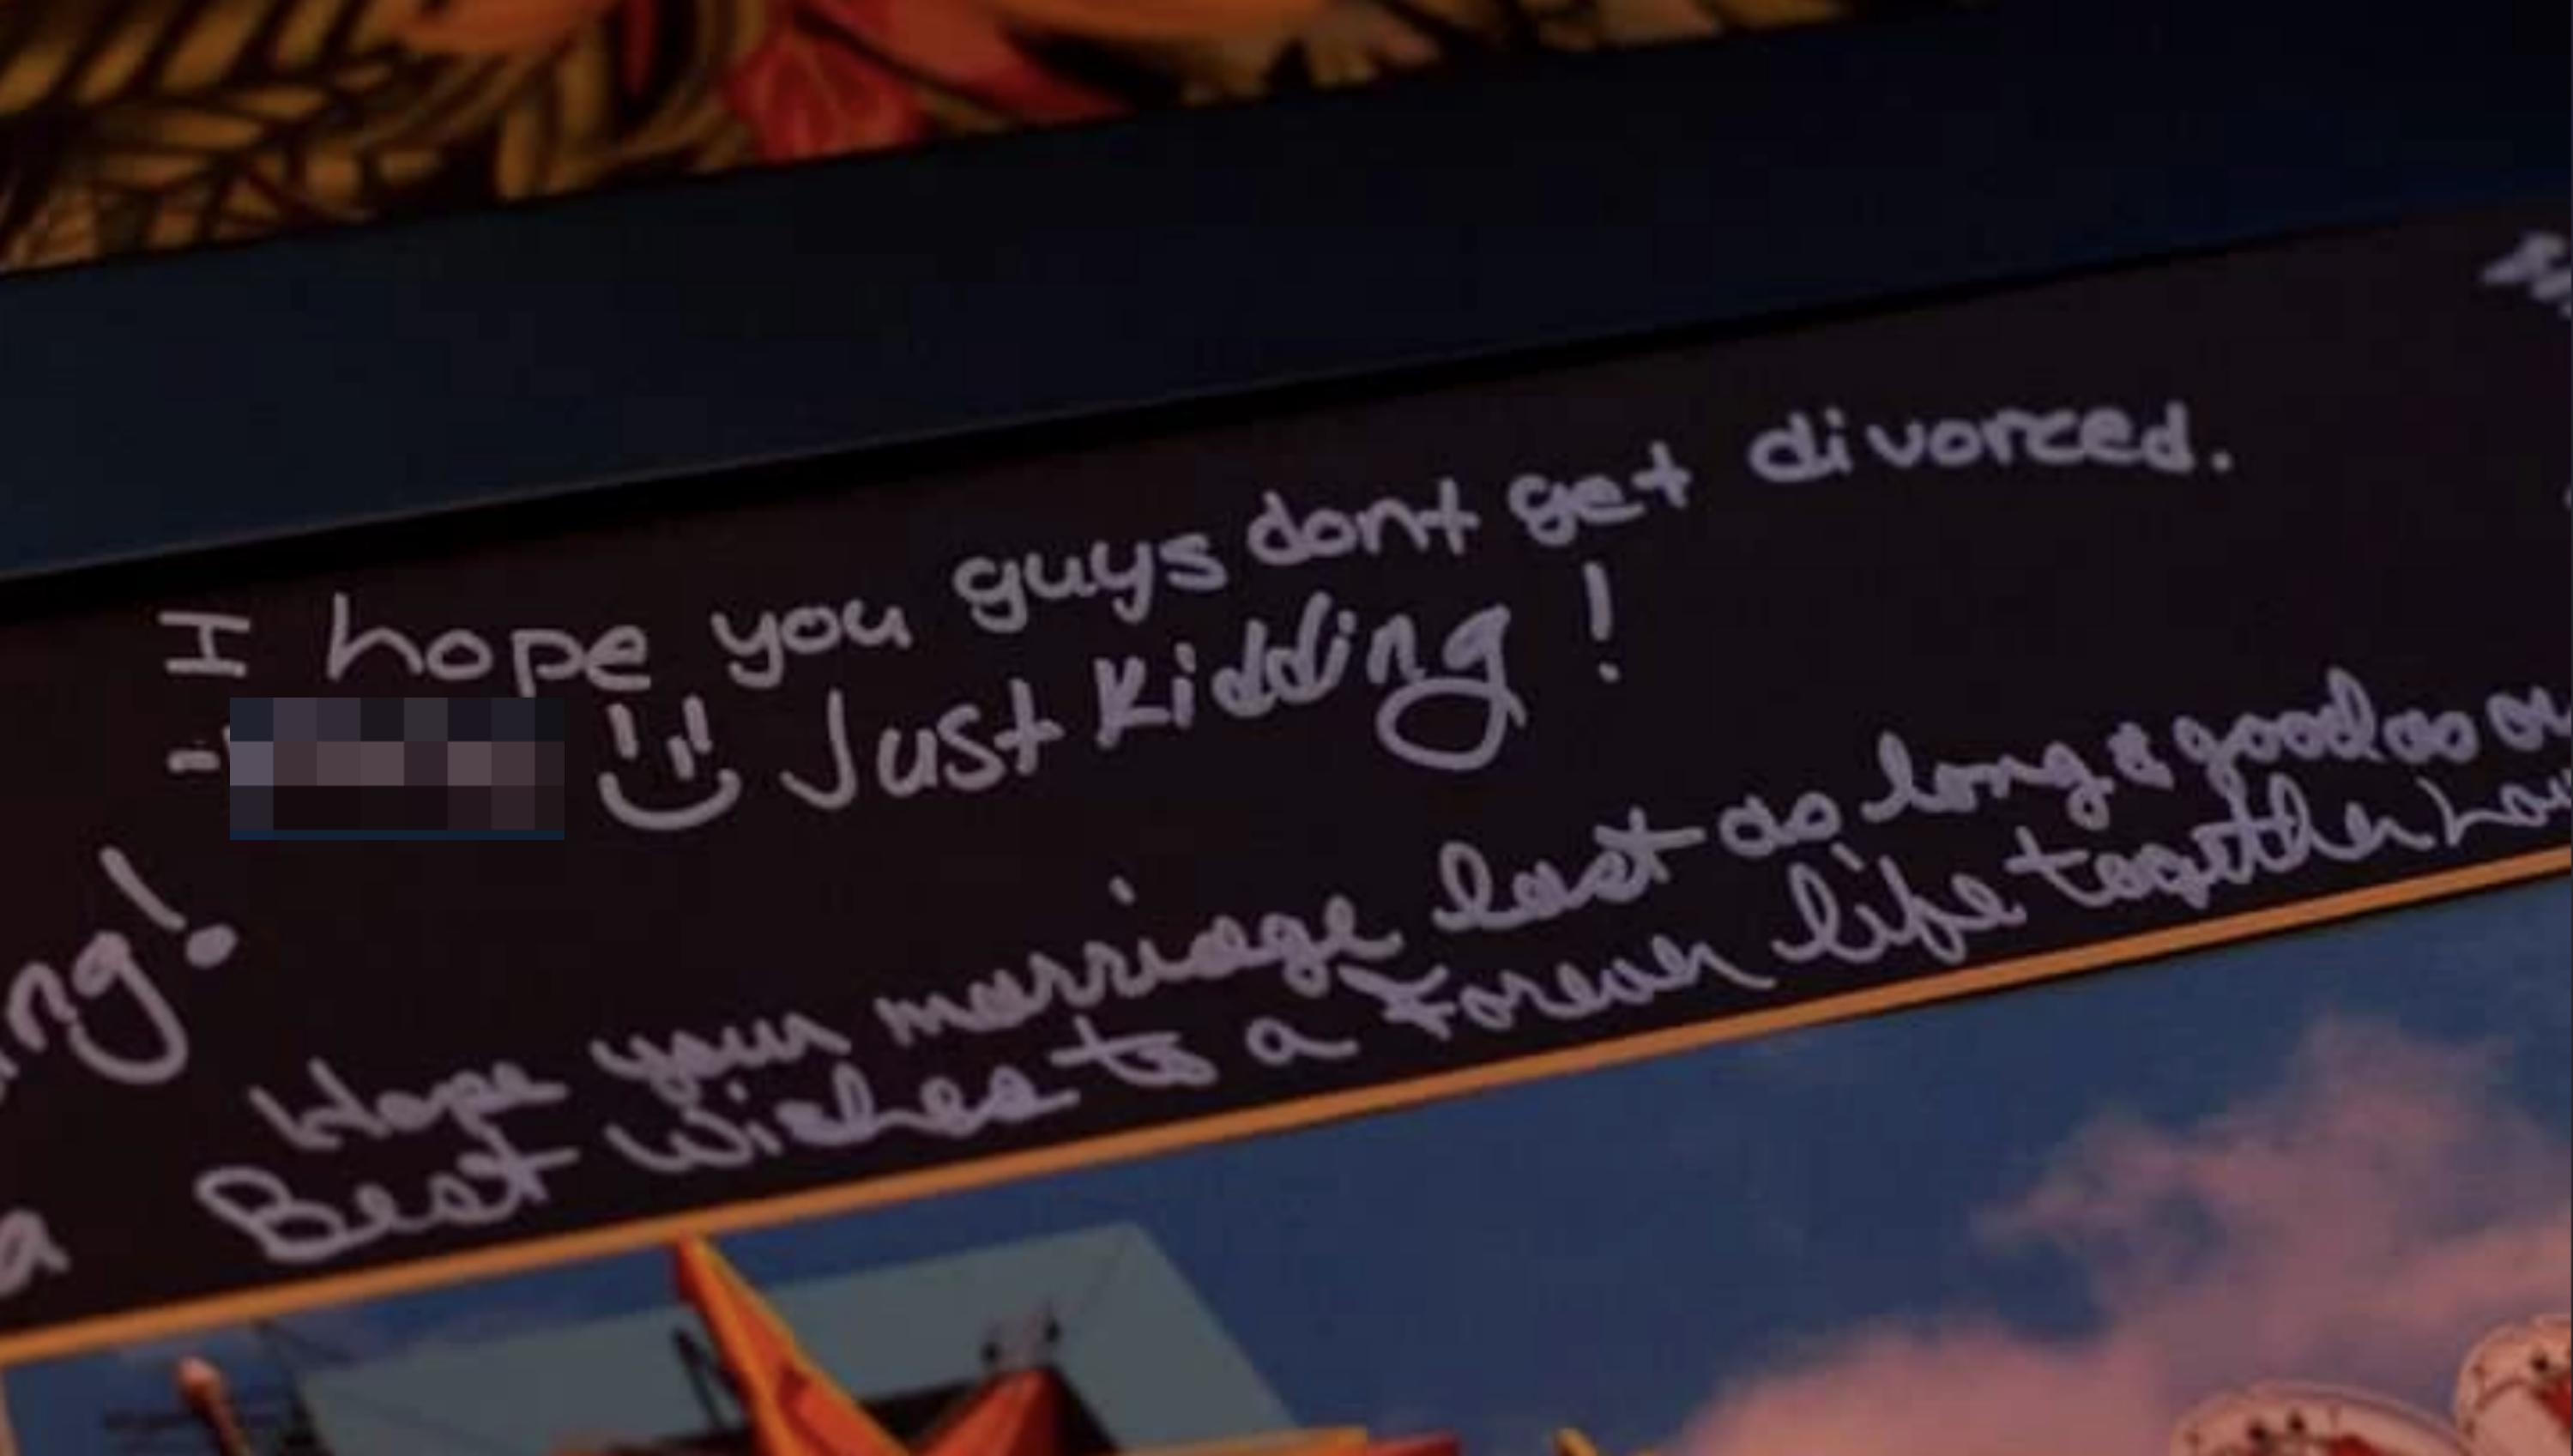 I hope you guys dont get divorced.
- Just Kidding!
ng!
Hope your marriage last as long & good as ou
Best Wishes to a Forever life together Lov
a